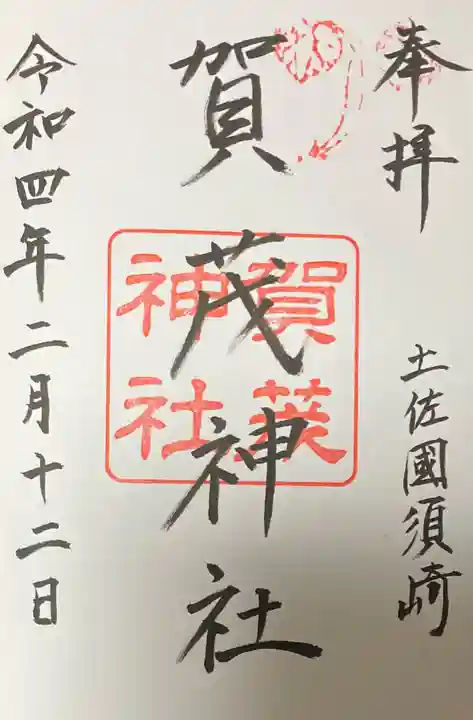 奉拝
土佐國須崎
賀茂神社
賀茂
神社
令和四年二月十二日